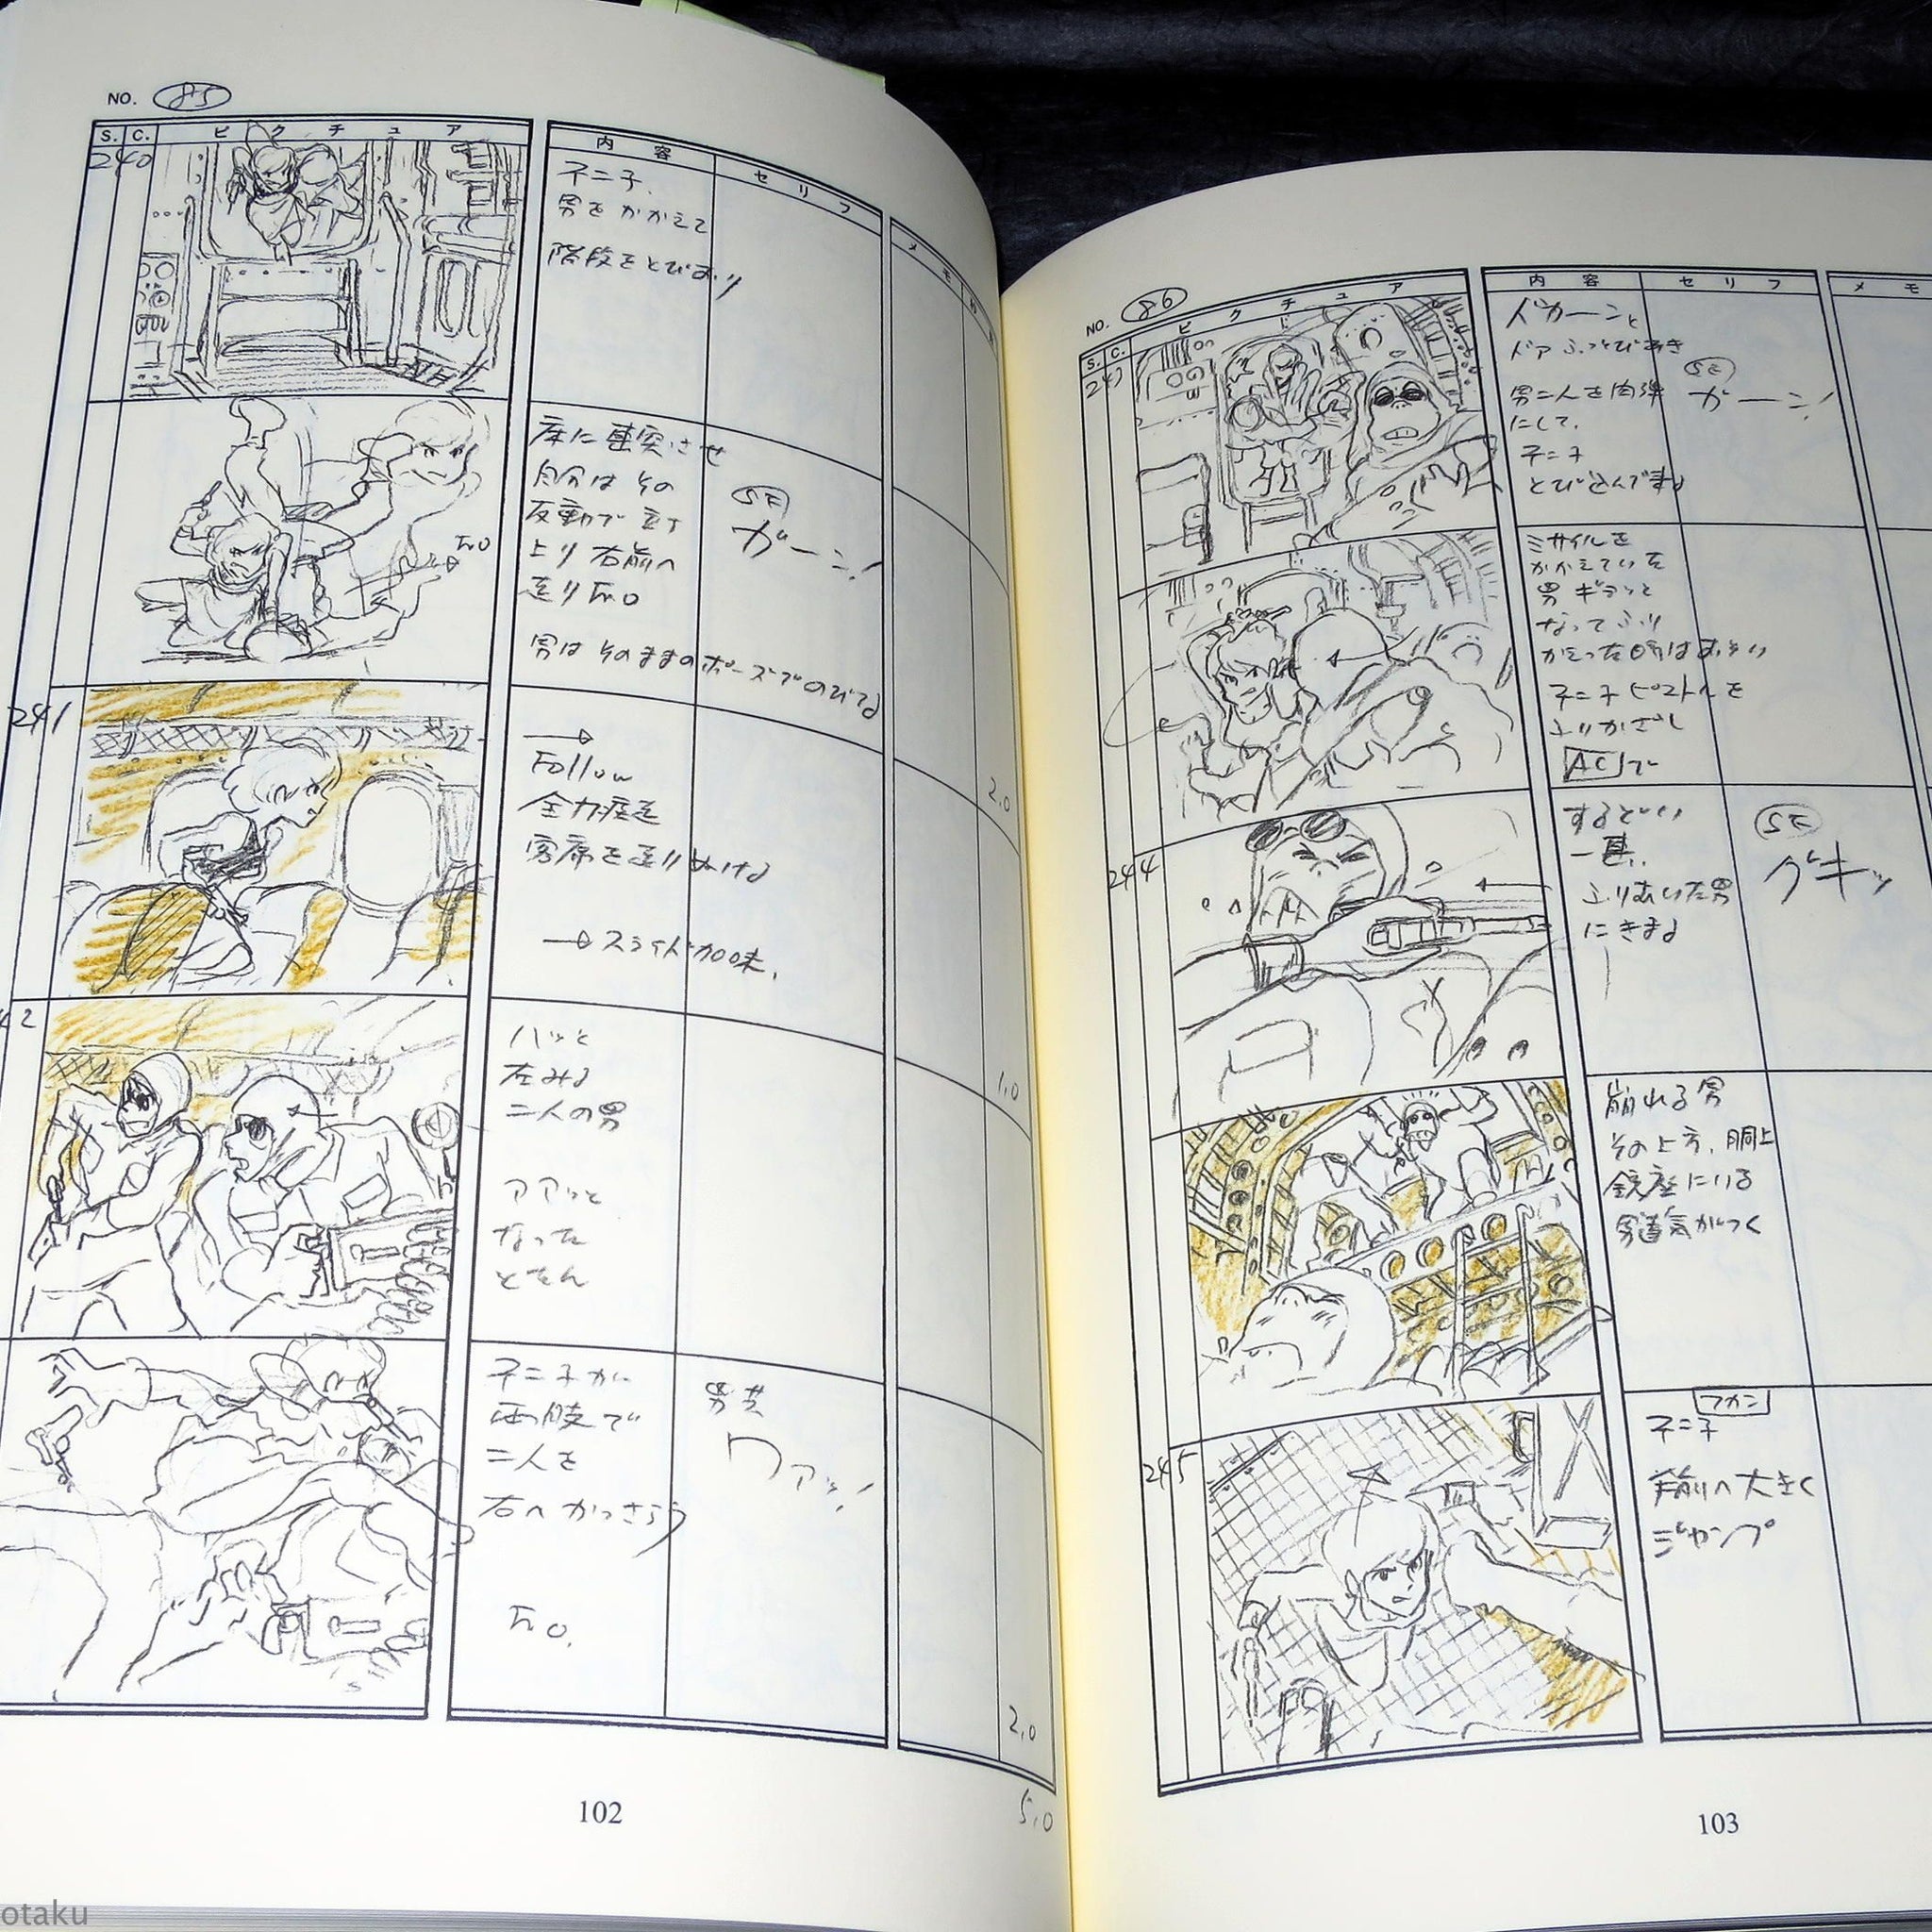 NO. 85
S. C. ピクチュア 内容 セリフ メモ
240
不二子、
男をかかえて
階段をとびおり
床に激突させ
自分はその
反動で立ち
上り右前へ
走りFrO
SE
ガーン!
FrO
男はそのままのポーズでのびてる
241
Follow
全力疾走
客席を走りぬける
→スライド加味、
ハッと
左みる
二人の男
アアッと
なった
とたん
不二子が
両腕で
二人を
右へかっさらう
FrO.
男共
ワァッ!
2,0
1,0
2,0
5,0
102
NO. 86
S. C. ピクチュア 内容 セリフ メモ
ドカーンと
ドアふっとびあき
男二人を肉弾
にして、
不二子
とび込んでまる
SE
ガーン!
ミサイルを
かかえていた
男ギクッと
なってふり
かえった時はおそい
不二子ピストルを
ふりかざし
ACで
244
するどい
一甚、
ふりむいた男
にきまる
SE
グキッ
崩れる男
その上方、胴上
銃座にいる
男達気がつく
245
フカン
不二子
手前へ大きく
ジャンプ
103
otaku